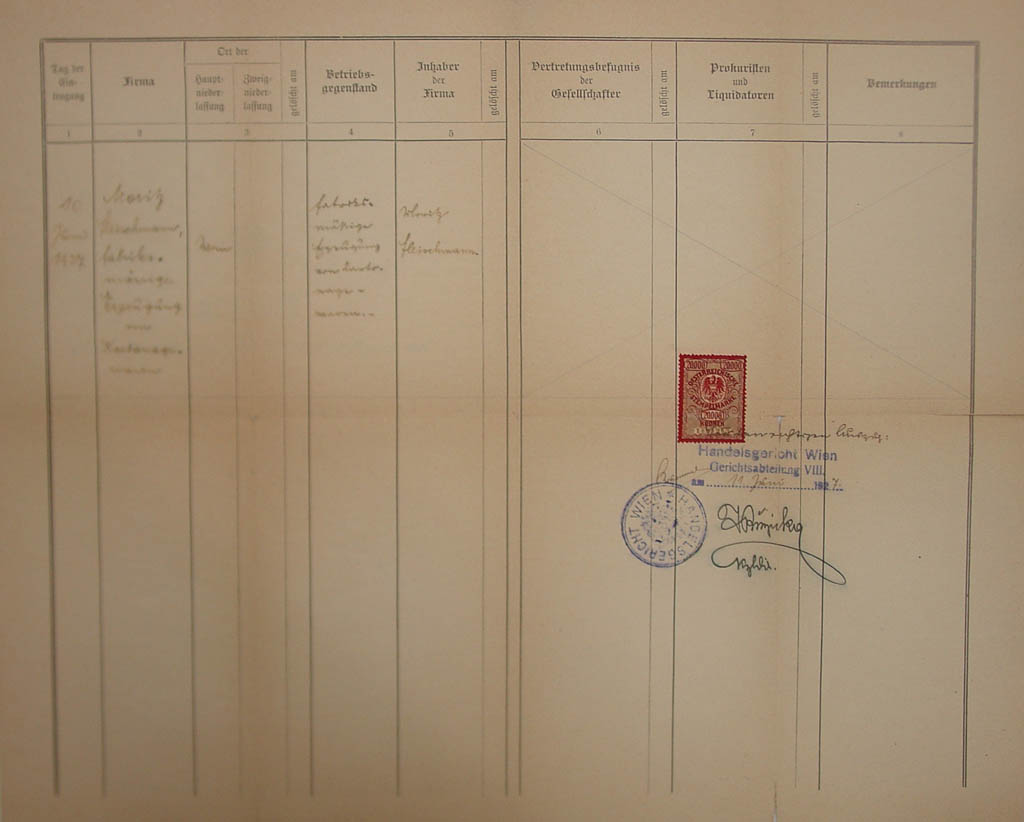 Tag der
Ein-
tragung
Firma
Ort der
Haupt-
nieder-
lassung
Zweig-
nieder-
lassung
gelöscht am
Betriebs-
gegenstand
Inhaber
der
Firma
gelöscht am
Vertretungsbefugnis
der
Gesellschafter
gelöscht am
Prokuristen
und
Liquidatoren
gelöscht am
Bemerkungen
1
2
3
4
5
6
7
8
10
Juni
1927
Moritz
Fleischmann,
fabriks-
mässige
Erzeugung
von
Kartonage-
waren
Wien
fabriks-
mäßige
Erzeugung
von Karto-
nage-
waren.-
Moritz
Fleischmann
20000 20000
OESTERREICHISCHE
STEMPELMARKE
20000
KRONEN
Auszug:
Handelsgericht Wien
Gerichtsabteilung VIII.
am 11. Juni 1927.
HANDELSGERICHT WIEN